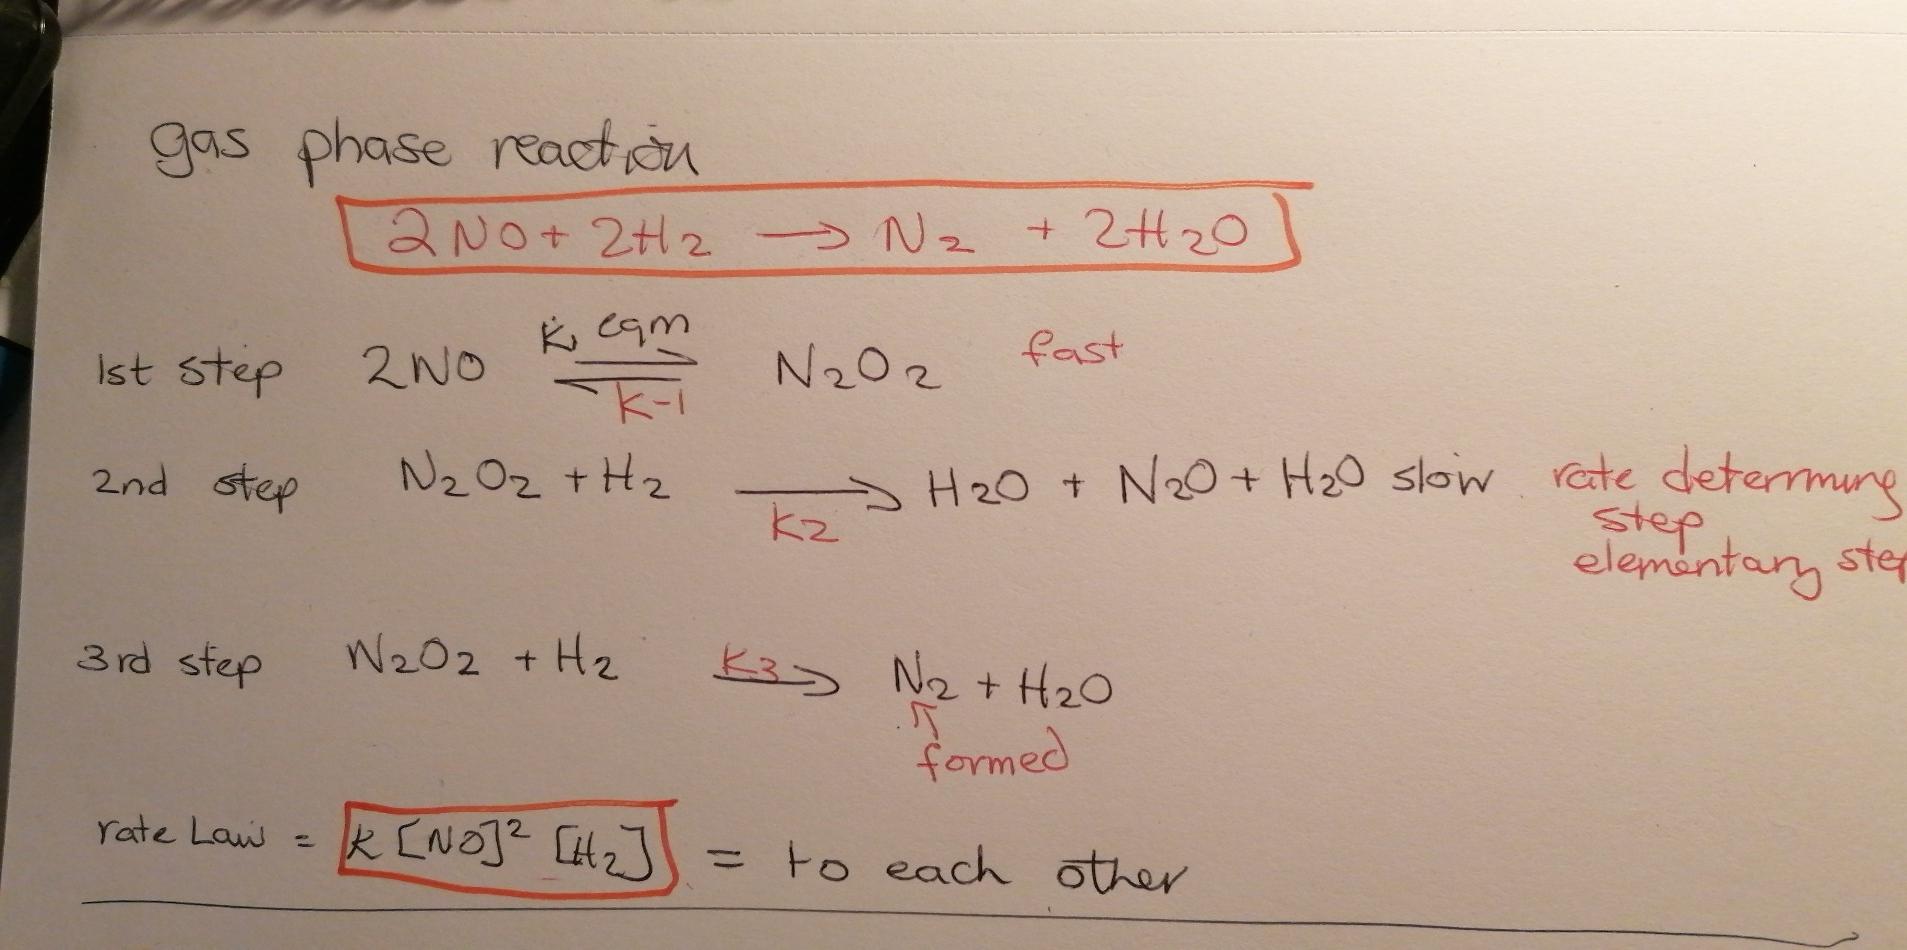 gas phase reaction
2NO + 2H2 → N2 + 2H2O
1st step 2NO k1 eqm ⇌ k-1 N2O2 fast
2nd step N2O2 + H2 → k2 H2O + N2O + H2O slow rate determining
step
elementary step
3rd step N2O2 + H2 k3 → N2 + H2O
↑
formed
rate Law = k [NO]² [H2] = to each other